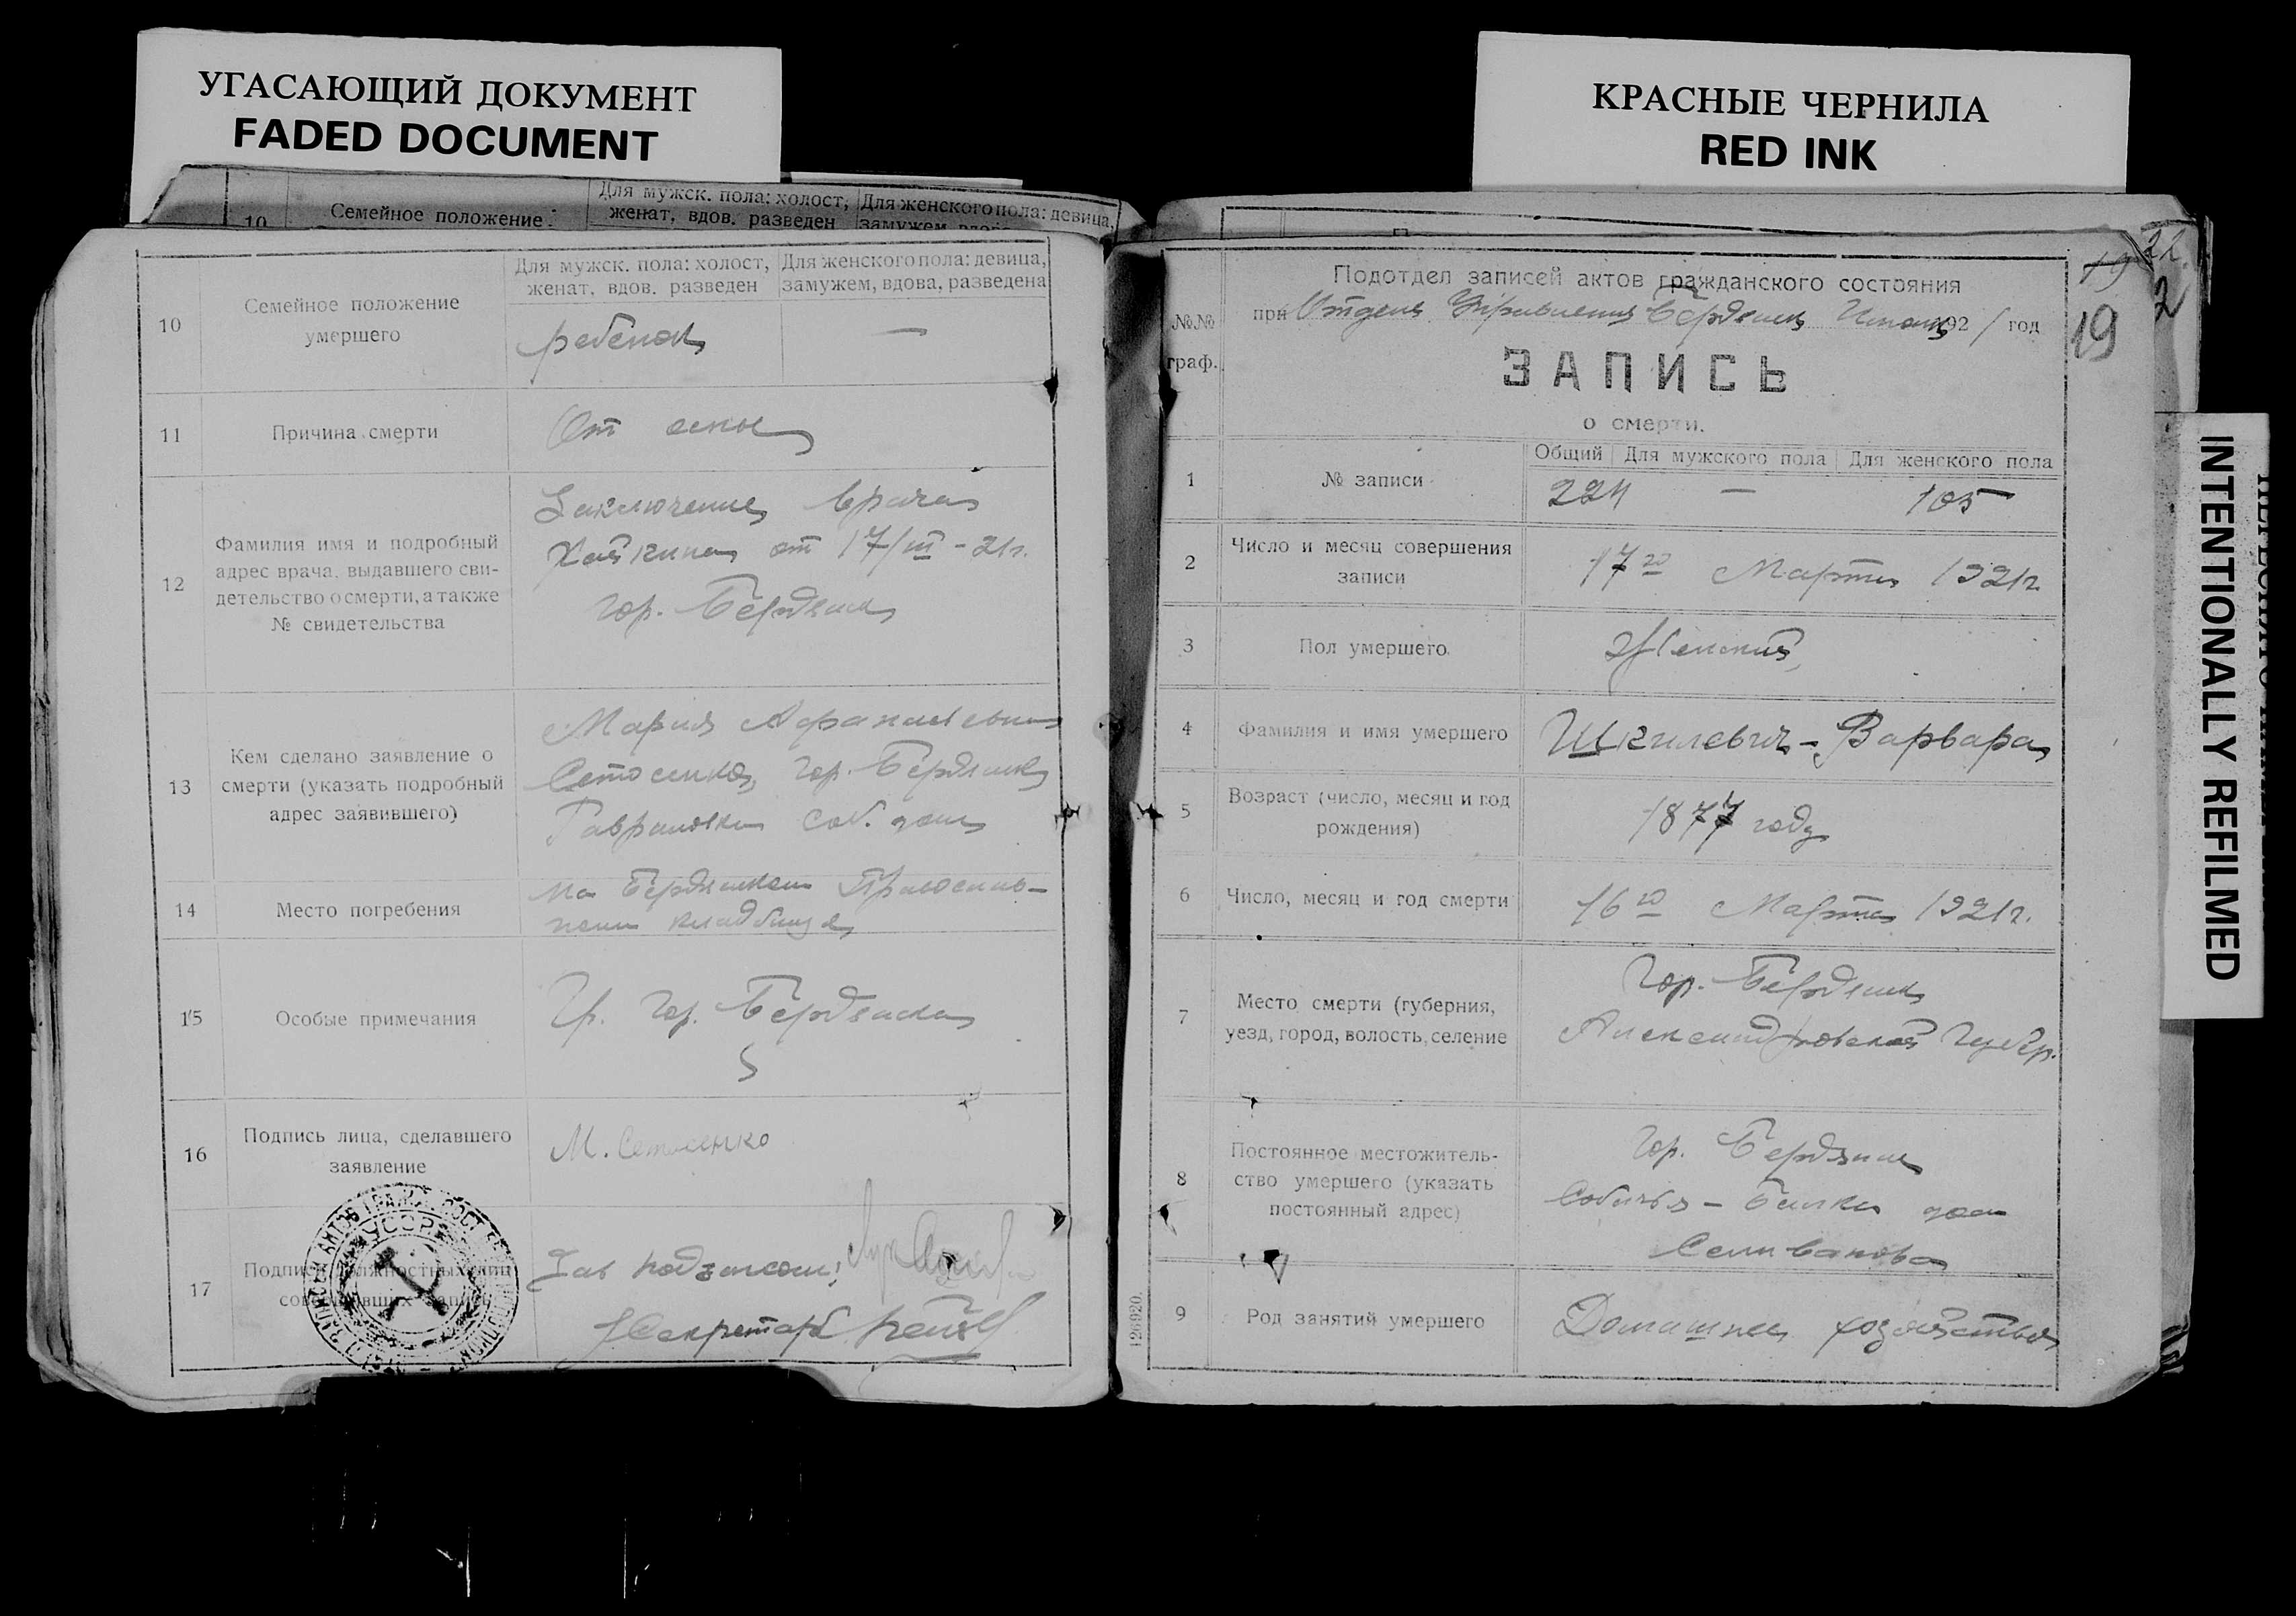 УГАСАЮЩИЙ ДОКУМЕНТ
FADED DOCUMENT
КРАСНЫЕ ЧЕРНИЛА
RED INK
INTENTIONALLY REFILMED
10 Семейное положение
Для мужск. пола: холост, женат, вдов. разведен
Для женского пола: девица, замужем
10
Семейное положение
умершего
Для мужск. пола: холост,
женат, вдов. разведен
Для женского пола: девица,
замужем, вдова, разведена
ребенок
—
11
Причина смерти
От оспы
12
Фамилия имя и подробный
адрес врача, выдавшего сви-
детельство о смерти, а также
№ свидетельства
Заключение врача
Хайкина от 17/III - 21г.
гор. Бердянск
13
Кем сделано заявление о
смерти (указать подробный
адрес заявившего)
Мария Афанасьевна
гор. Бердянск
соб. дом
14
Место погребения
На Бердянском
кладбище
15
Особые примечания
Гр. гор. Бердянска
16
Подпись лица, сделавшего
заявление
М.
17
Подпись должностных лиц
совершивших запись
УССР
Зав подзагсом:
Секретарь
22.
2
19
19
№№
граф.
Подотдел записей актов гражданского состояния
при Отделе Управления Бердянск 1921 год
ЗАПИСЬ
о смерти.
1
№ записи
Общий Для мужского пола Для женского пола
224 — 105
2
Число и месяц совершения
записи
17го Марта 1921г.
3
Пол умершего
Женский
4
Фамилия и имя умершего
Шкилевич - Варвара
5
Возраст (число, месяц и год
рождения)
1877 году
6
Число, месяц и год смерти
16го Марта 1921г.
7
Место смерти (губерния,
уезд, город, волость, селение
Гор. Бердянск
Александровской Губер.
8
Постоянное местожитель-
ство умершего (указать
постоянный адрес)
Гор. Бердянск
Собачья - Балка дом
Селиванова
9
Род занятий умершего
Домашнее хозяйство
126920.